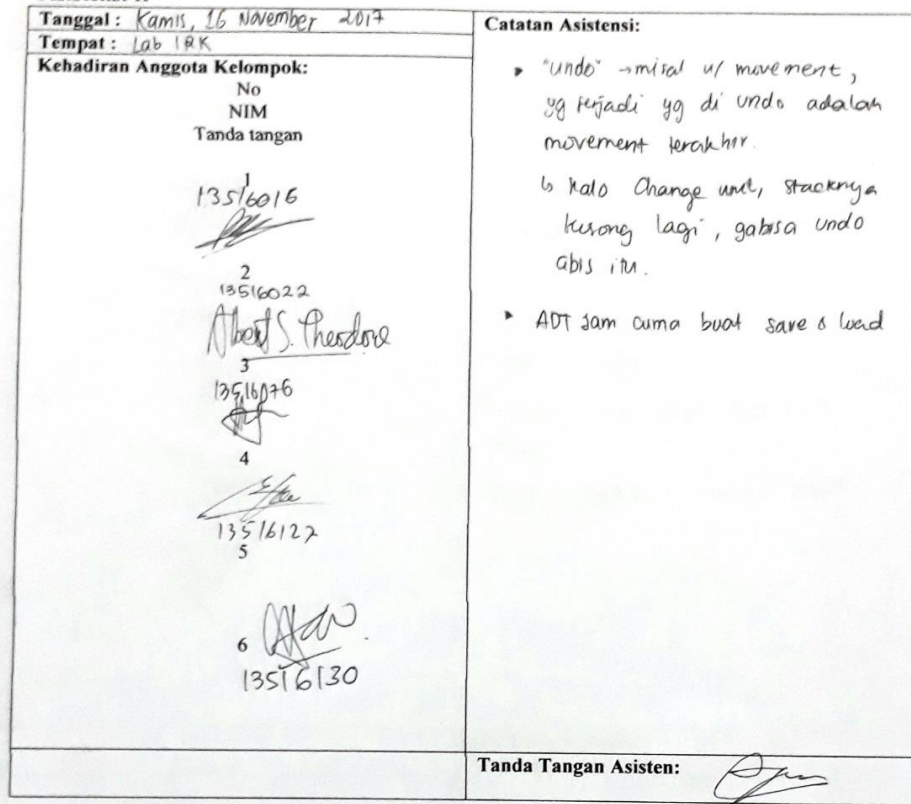 Tanggal : Kamis, 16 November 2017
Tempat : Lab IRK
Kehadiran Anggota Kelompok:
No
NIM
Tanda tangan
1
13516016
2
13516022
Albert S. Theodore
3
13516076
4
13516127
5
6
13516130
Catatan Asistensi:
"undo" → misal u/ movement,
yg terjadi yg di undo adalah
movement terakhir.
↳ kalo Change unit, stacknya
kosong lagi, gabisa undo
abis itu.
ADT Jam cuma buat save & load
Tanda Tangan Asisten: